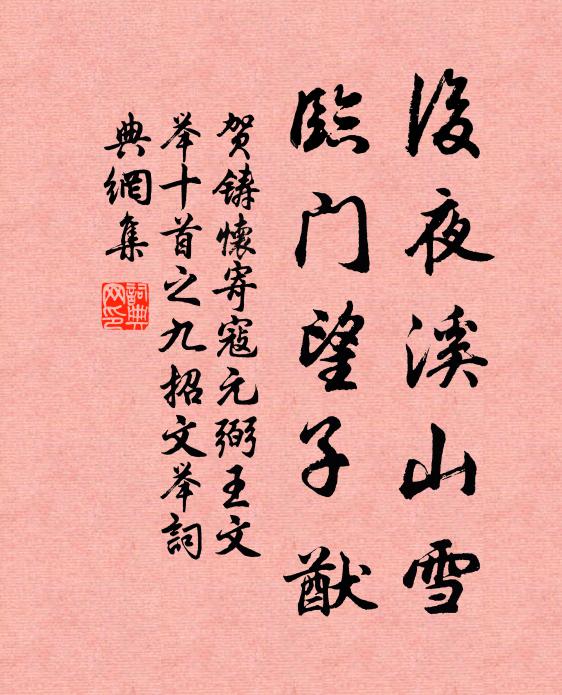 後夜溪山雪
臨门望子猷
贺鋳懷寄寇元弼王文
举十首之九招文举詞
典網集
詞典网印